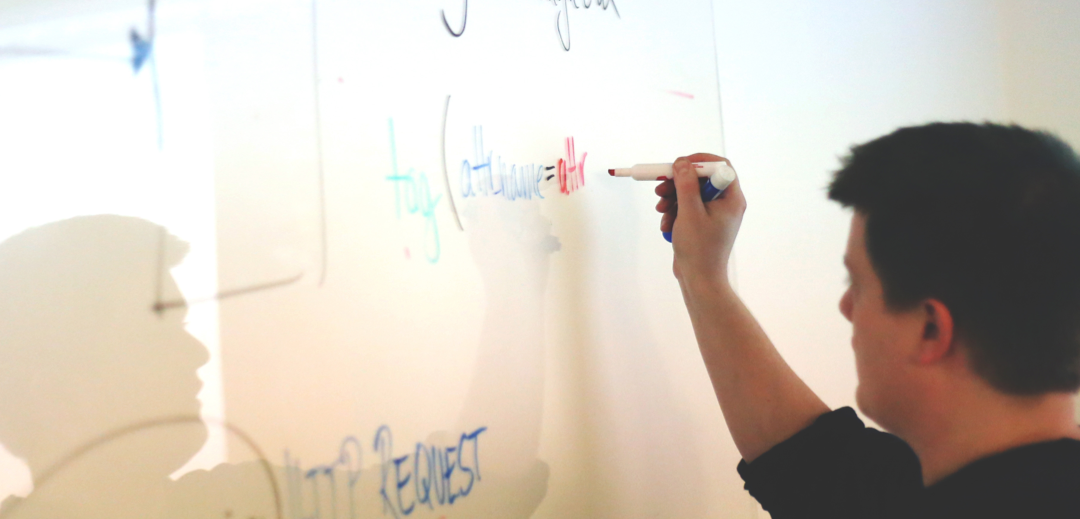 tag (attrname=attr
HTTP REQUEST